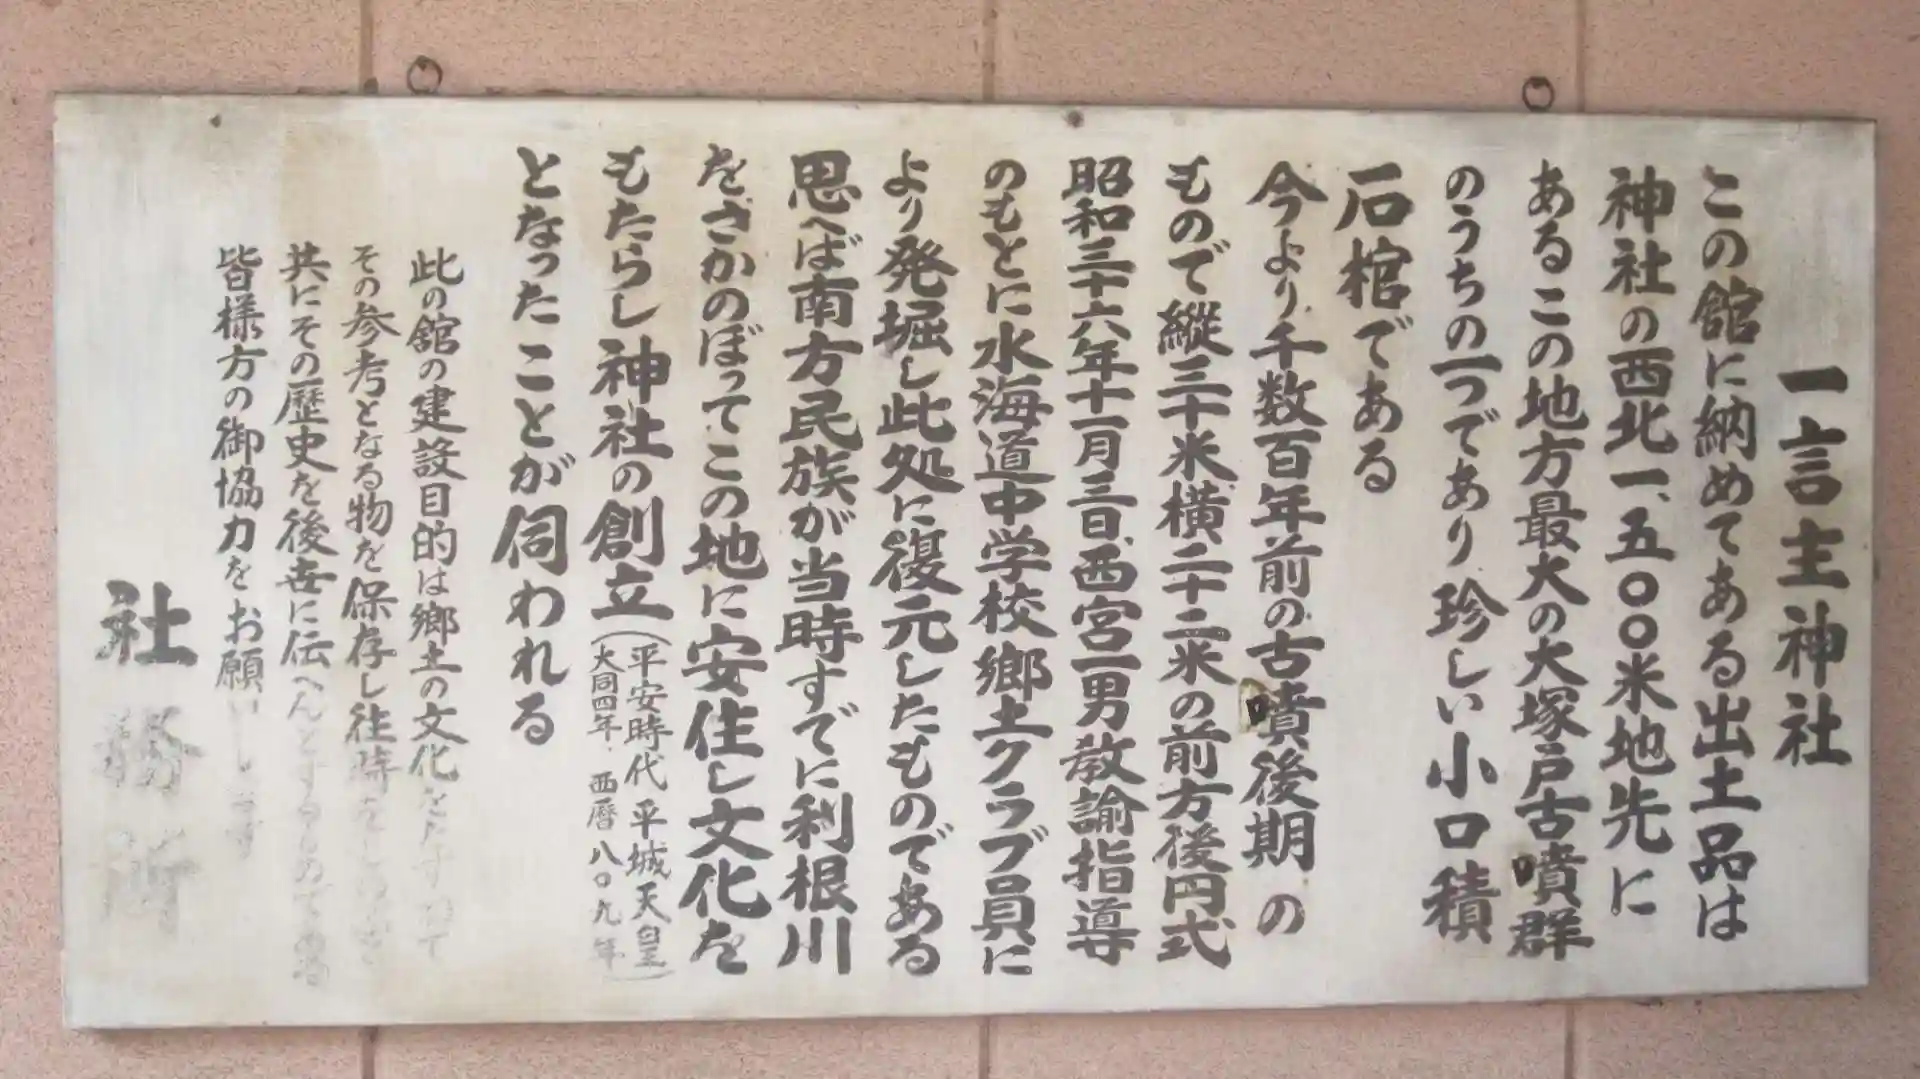 一言主神社
この館に納めてある出土品は
神社の西北一、五〇〇米地先に
あるこの地方最大の大塚戸古噴群
のうちの一つであり珍しい小口積
石棺である
今より千数百年前の古噴後期の
もので縦三十米横二十二米の前方後円式
昭和三十六年十一月三日、西宮一男教諭指導
のもとに水海道中学校郷土クラブ員に
より発堀し此処に復元したものである
思へば南方民族が当時すでに利根川
をさかのぼってこの地に安住し文化を
もたらし神社の創立（平安時代 平城天皇）
大同四年．西暦八〇九年
となったことが伺われる
此の館の建設目的は郷土の文化を
その参考となる物を保存し往時を
共にその歴史を後世に伝へんとするもので
皆様方の御協力をお願いします
社務所